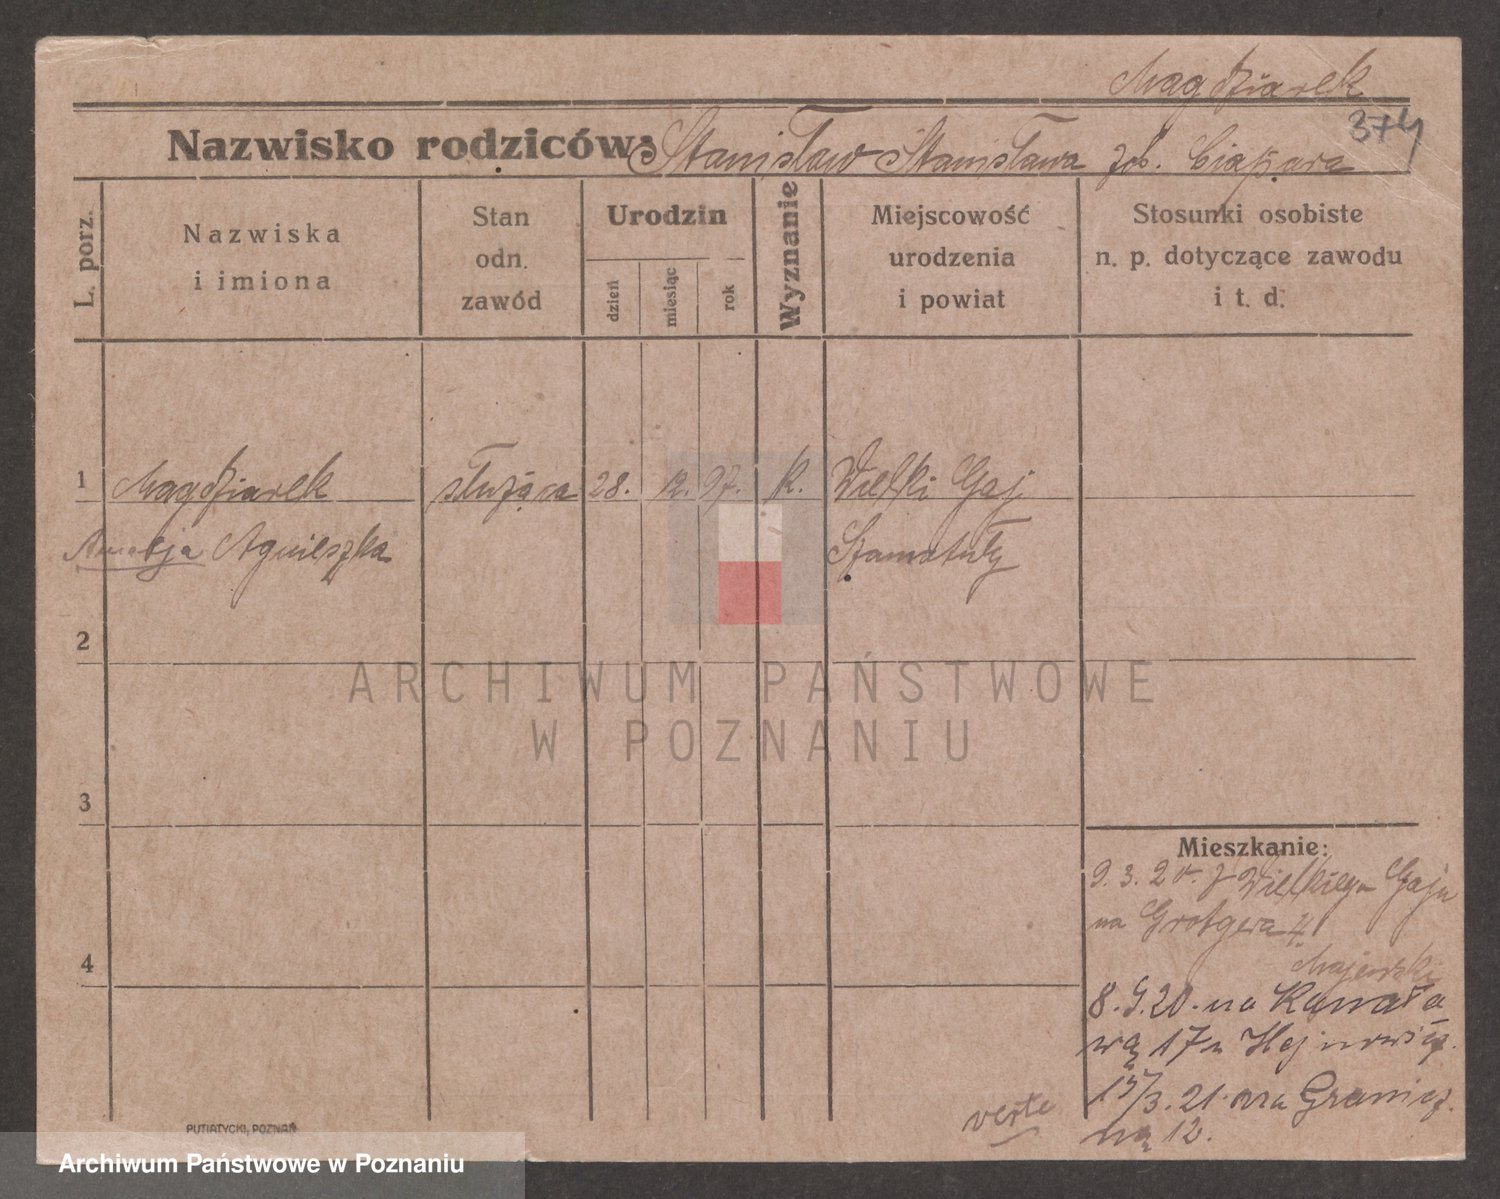 Magdziarek
374
Nazwisko rodziców: Stanisław Stanisława zob. Ciapara
L. porz.
Nazwiska
i imiona
Stan
odn.
zawód
Urodzin
dzień
miesiąc
rok
Wyznanie
Miejscowość
urodzenia
i powiat
Stosunki osobiste
n. p. dotyczące zawodu
i t. d.
1 Magdziarek służąca 28. 12. 97. k. Wielki Gaj
Agnieszka Szamotuły
2
3
4
Mieszkanie:
9. 3. 20. z Wielkiego Gaju
na Grotgera 4.
Majewski
8. 9. 20. na Kanało
wą 17 u
15/3. 21. na Granicz
ną 12.
verte
PUTIATYCKI, POZNAŃ
ARCHIWUM PAŃSTWOWE
W POZNANIU
Archiwum Państwowe w Poznaniu